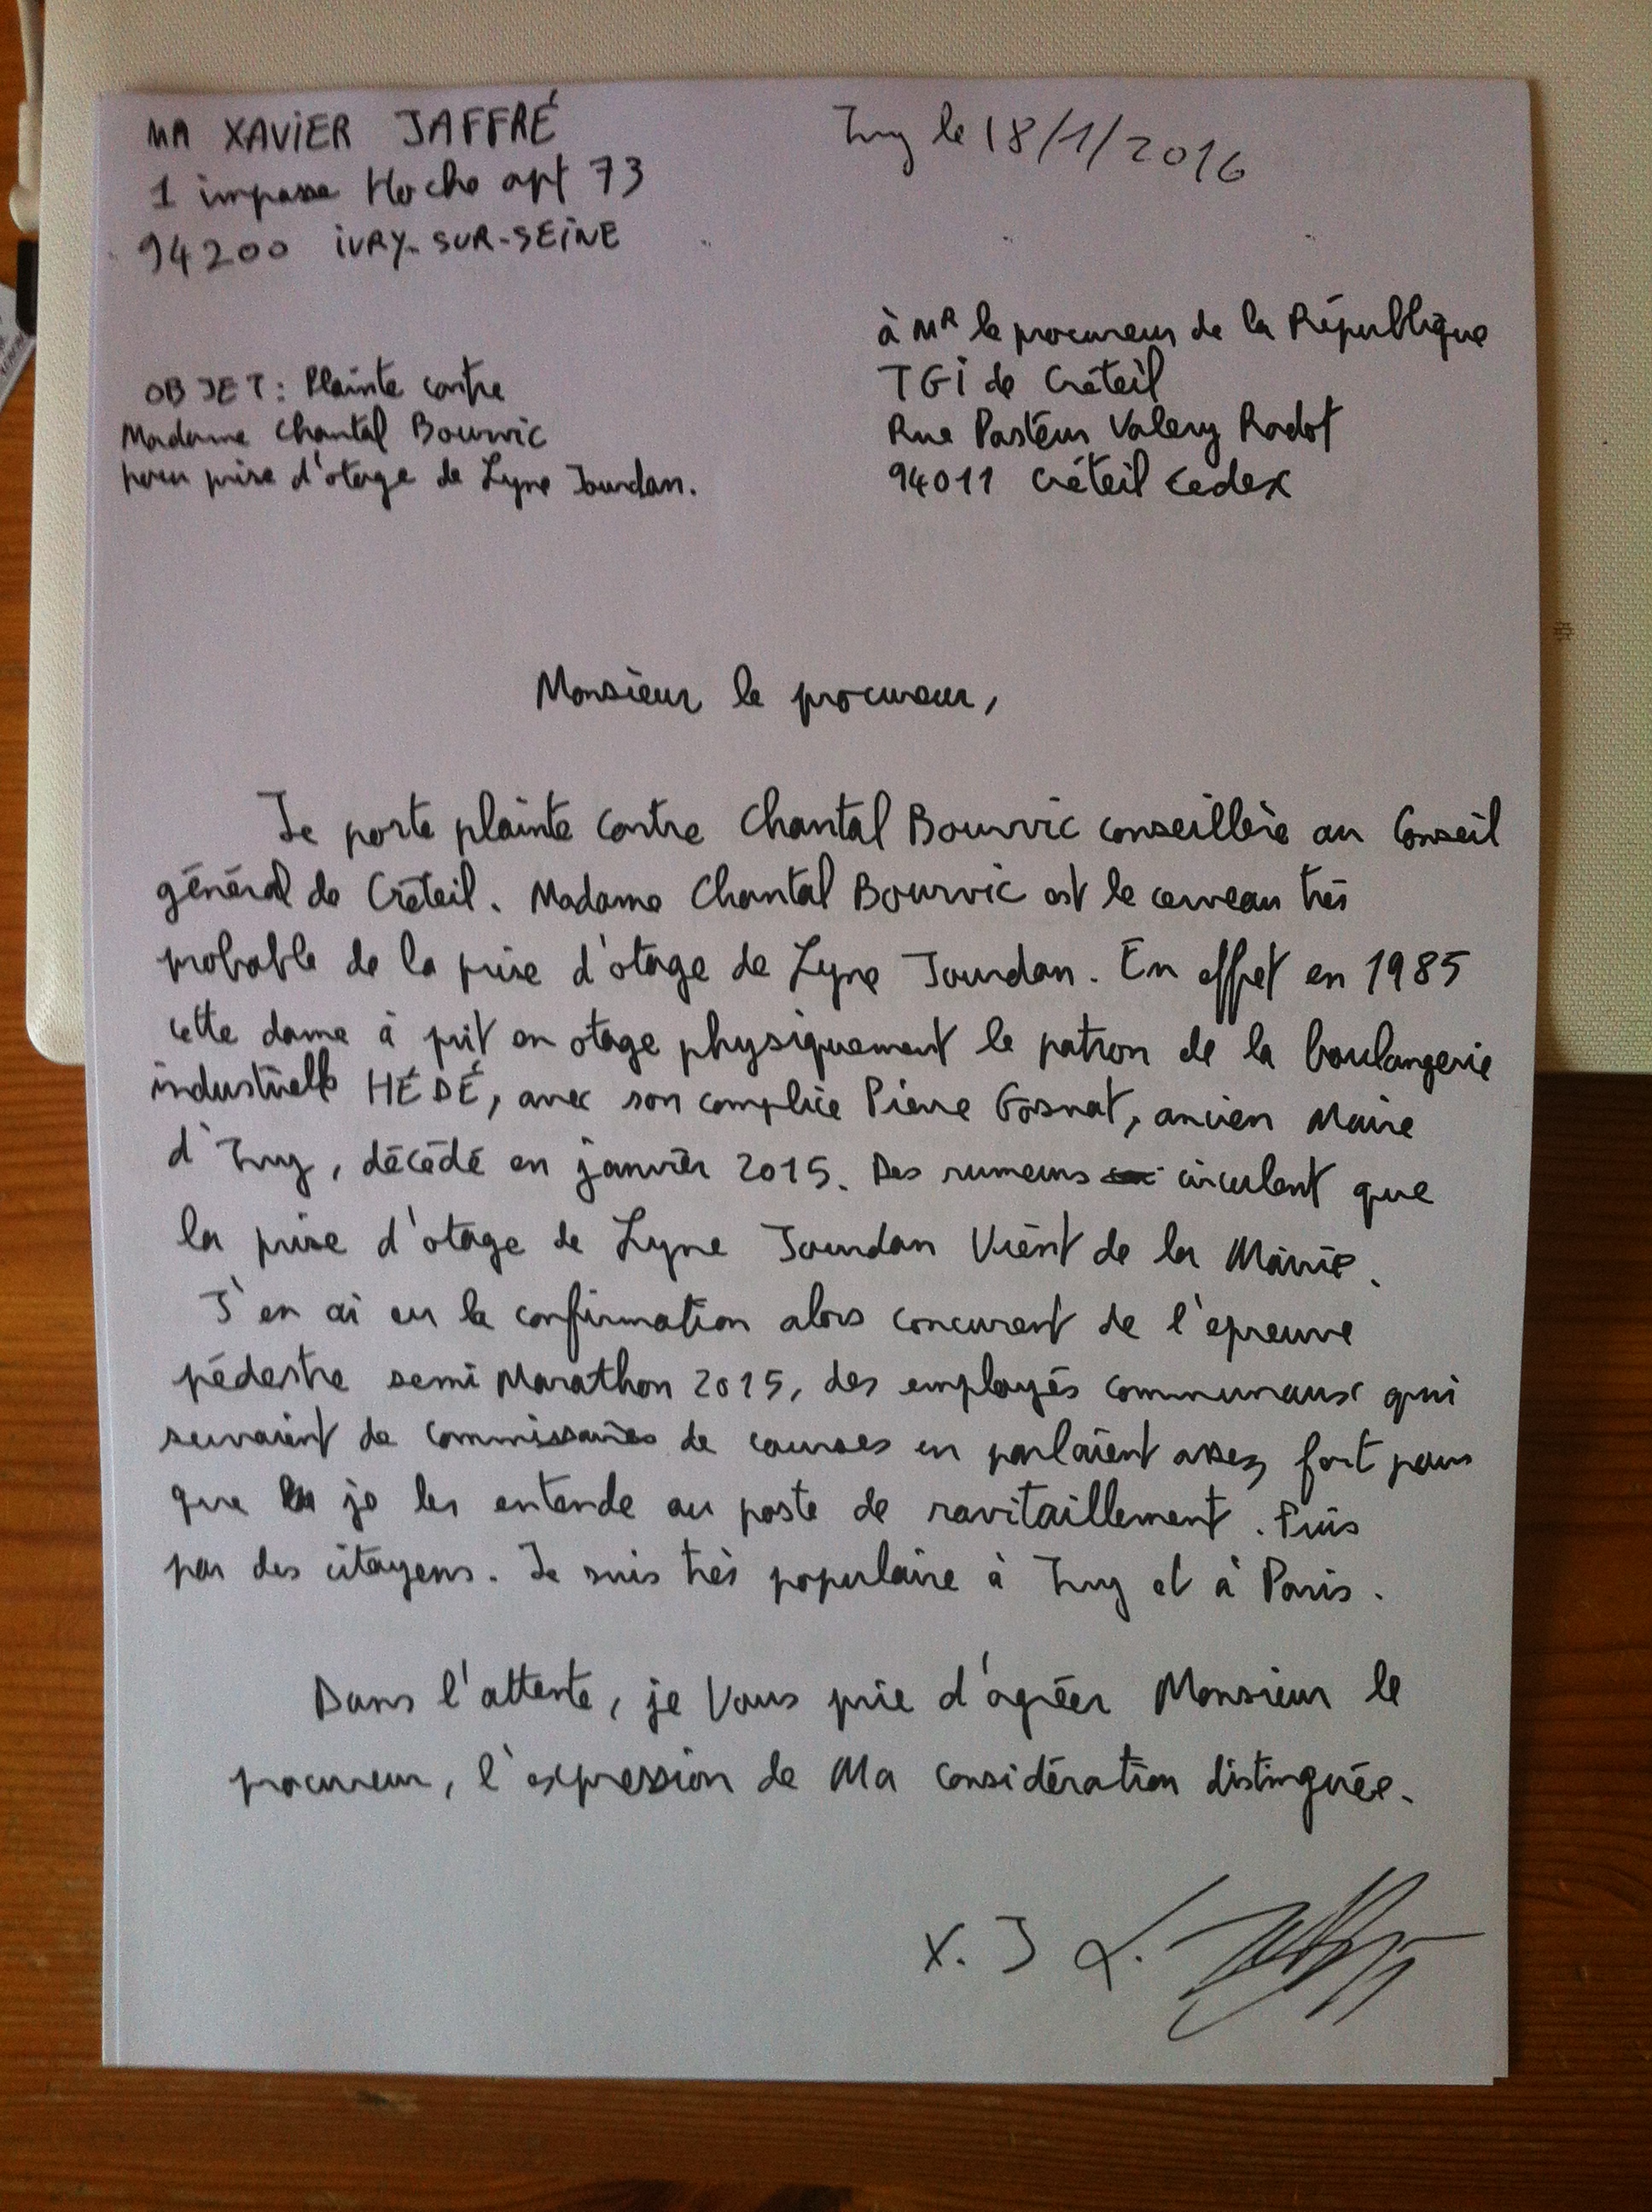 MR XAVIER JAFFRÉ
1 impasse Hoche apt 73
94200 IVRY-SUR-SEINE
Ivry le 18/1/2016
à MR le procureur de la République
TGI de Créteil
Rue Pasteur Valery Radot
94011 Créteil Cedex
OBJET: Plainte contre
Madame Chantal Bourvic
pour prise d'otage de Lyne Jourdan.
Monsieur le procureur,
Je porte plainte contre Chantal Bourvic conseillère au Conseil
général de Créteil. Madame Chantal Bourvic est le cerveau très
probable de la prise d'otage de Lyne Jourdan. En effet en 1985
cette dame à prit en otage physiquement le patron de la boulangerie
industrielle HÉDÉ, avec son complice Pierre Gosnat, ancien Maire
d'Ivry, décédé en janvier 2015. Des rumeurs circulent que
la prise d'otage de Lyne Jourdan Vient de la Mairie.
J'en ai eu la confirmation alors concurent de l'épreuve
pédestre semi Marathon 2015, des employés communaux qui
servaient de commissaires de courses en parlaient assez fort pour
que je les entende au poste de ravitaillement. Puis
par des citoyens. Je suis très populaire à Ivry et à Paris.
Dans l'attente, je Vous prie d'agréer Monsieur le
procureur, l'expression de Ma considération distinguée.
X. J